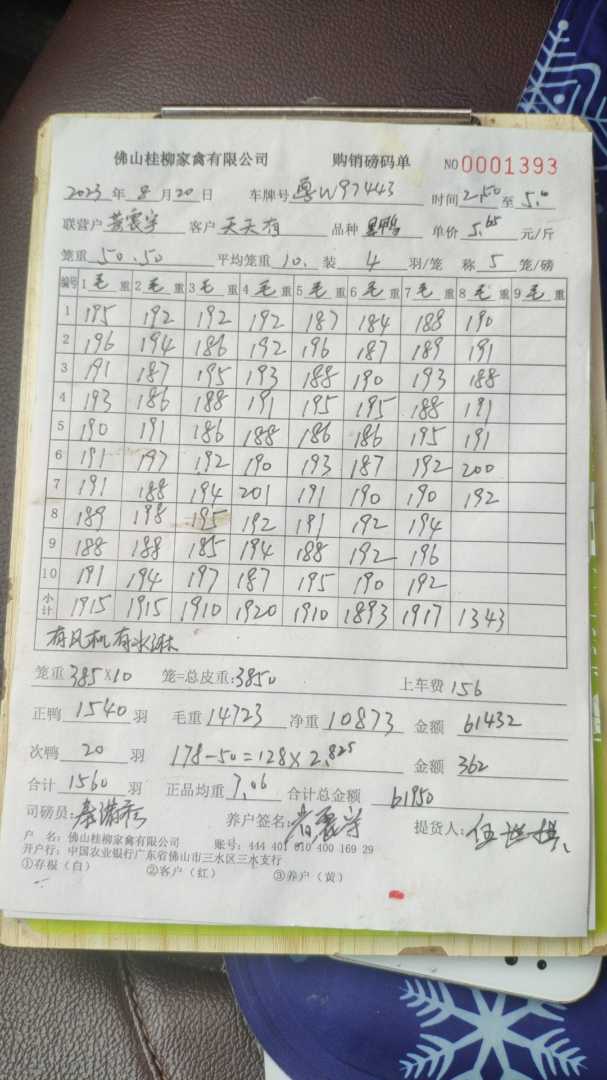 佛山桂柳家禽有限公司 购销磅码单 NO 0001393
2023年8月20日 车牌号 粤W97443 时间 2.50 至 5.0
联营户 客户 天天有 品种 单价 5.65 元/斤
笼重 50.50 平均笼重 10. 装 4 羽/笼 称 5 笼/磅
编号 1毛重 2毛重 3毛重 4毛重 5毛重 6毛重 7毛重 8毛重 9毛重
1 195 192 192 192 187 184 188 190
2 196 194 186 192 196 187 189 191
3 191 187 195 193 188 190 193 188
4 193 186 188 191 195 195 188 191
5 190 191 186 188 186 186 195 191
6 191 197 192 190 193 187 192 200
7 191 188 194 201 191 190 190 192
8 189 198 195 192 191 192 194
9 188 188 185 194 188 192 196
10 191 194 197 187 195 190 192
小计 1915 1915 1910 1920 1910 1893 1917 1343
有风机有水淋
笼重 385×10 笼=总皮重:3850 上车费 156
正鸭 1540 羽 毛重 14723 净重 10873 金额 61432
次鸭 20 羽 178-50=128×2.825 金额 362
合计 1560 羽 正品均重 7.06 合计总金额 61950
司磅员: 养户签名: 提货人:
户 名:佛山桂柳家禽有限公司 账号:444 401 010 400 169 29
开户行:中国农业银行广东省佛山市三水区三水支行
①存根(白) ②客户(红) ③养户(黄)